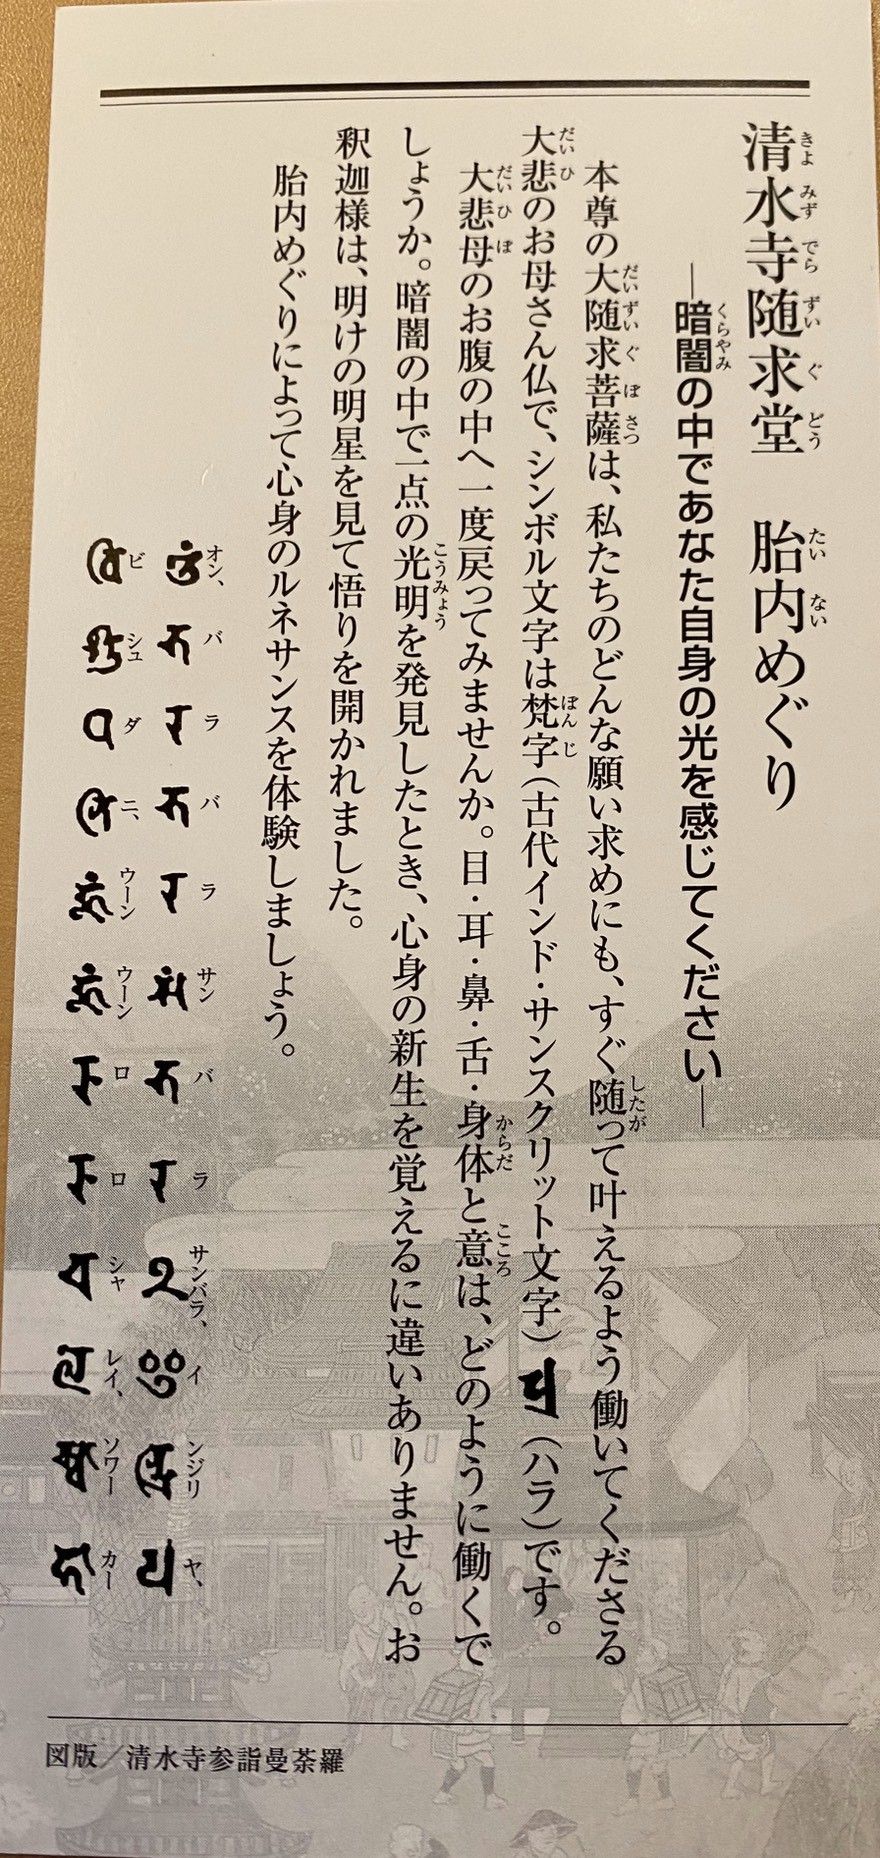 清水寺随求堂　胎内めぐり
きよみずでらずいぐどう　たいない
―暗闇の中であなた自身の光を感じてください―
くらやみ
本尊の大随求菩薩は、私たちのどんな願い求めにも、すぐ随って叶えるよう働いてくださる
だいずいぐぼさつ　したが
大悲のお母さん仏で、シンボル文字は梵字（古代インド・サンスクリット文字）（ハラ）です。
だいひ　ぼんじ
大悲母のお腹の中へ一度戻ってみませんか。目・耳・鼻・舌・身体と意は、どのように働くで
だいひぼ　からだ　こころ
しょうか。暗闇の中で一点の光明を発見したとき、心身の新生を覚えるに違いありません。お
こうみょう
釈迦様は、明けの明星を見て悟りを開かれました。
胎内めぐりによって心身のルネサンスを体験しましょう。
オン、バラバラサンバラサンバラ、インジリヤ、
ビシュダニ、ウーンウーンロロシャレイ、ソワーカー
図版／清水寺参詣曼荼羅